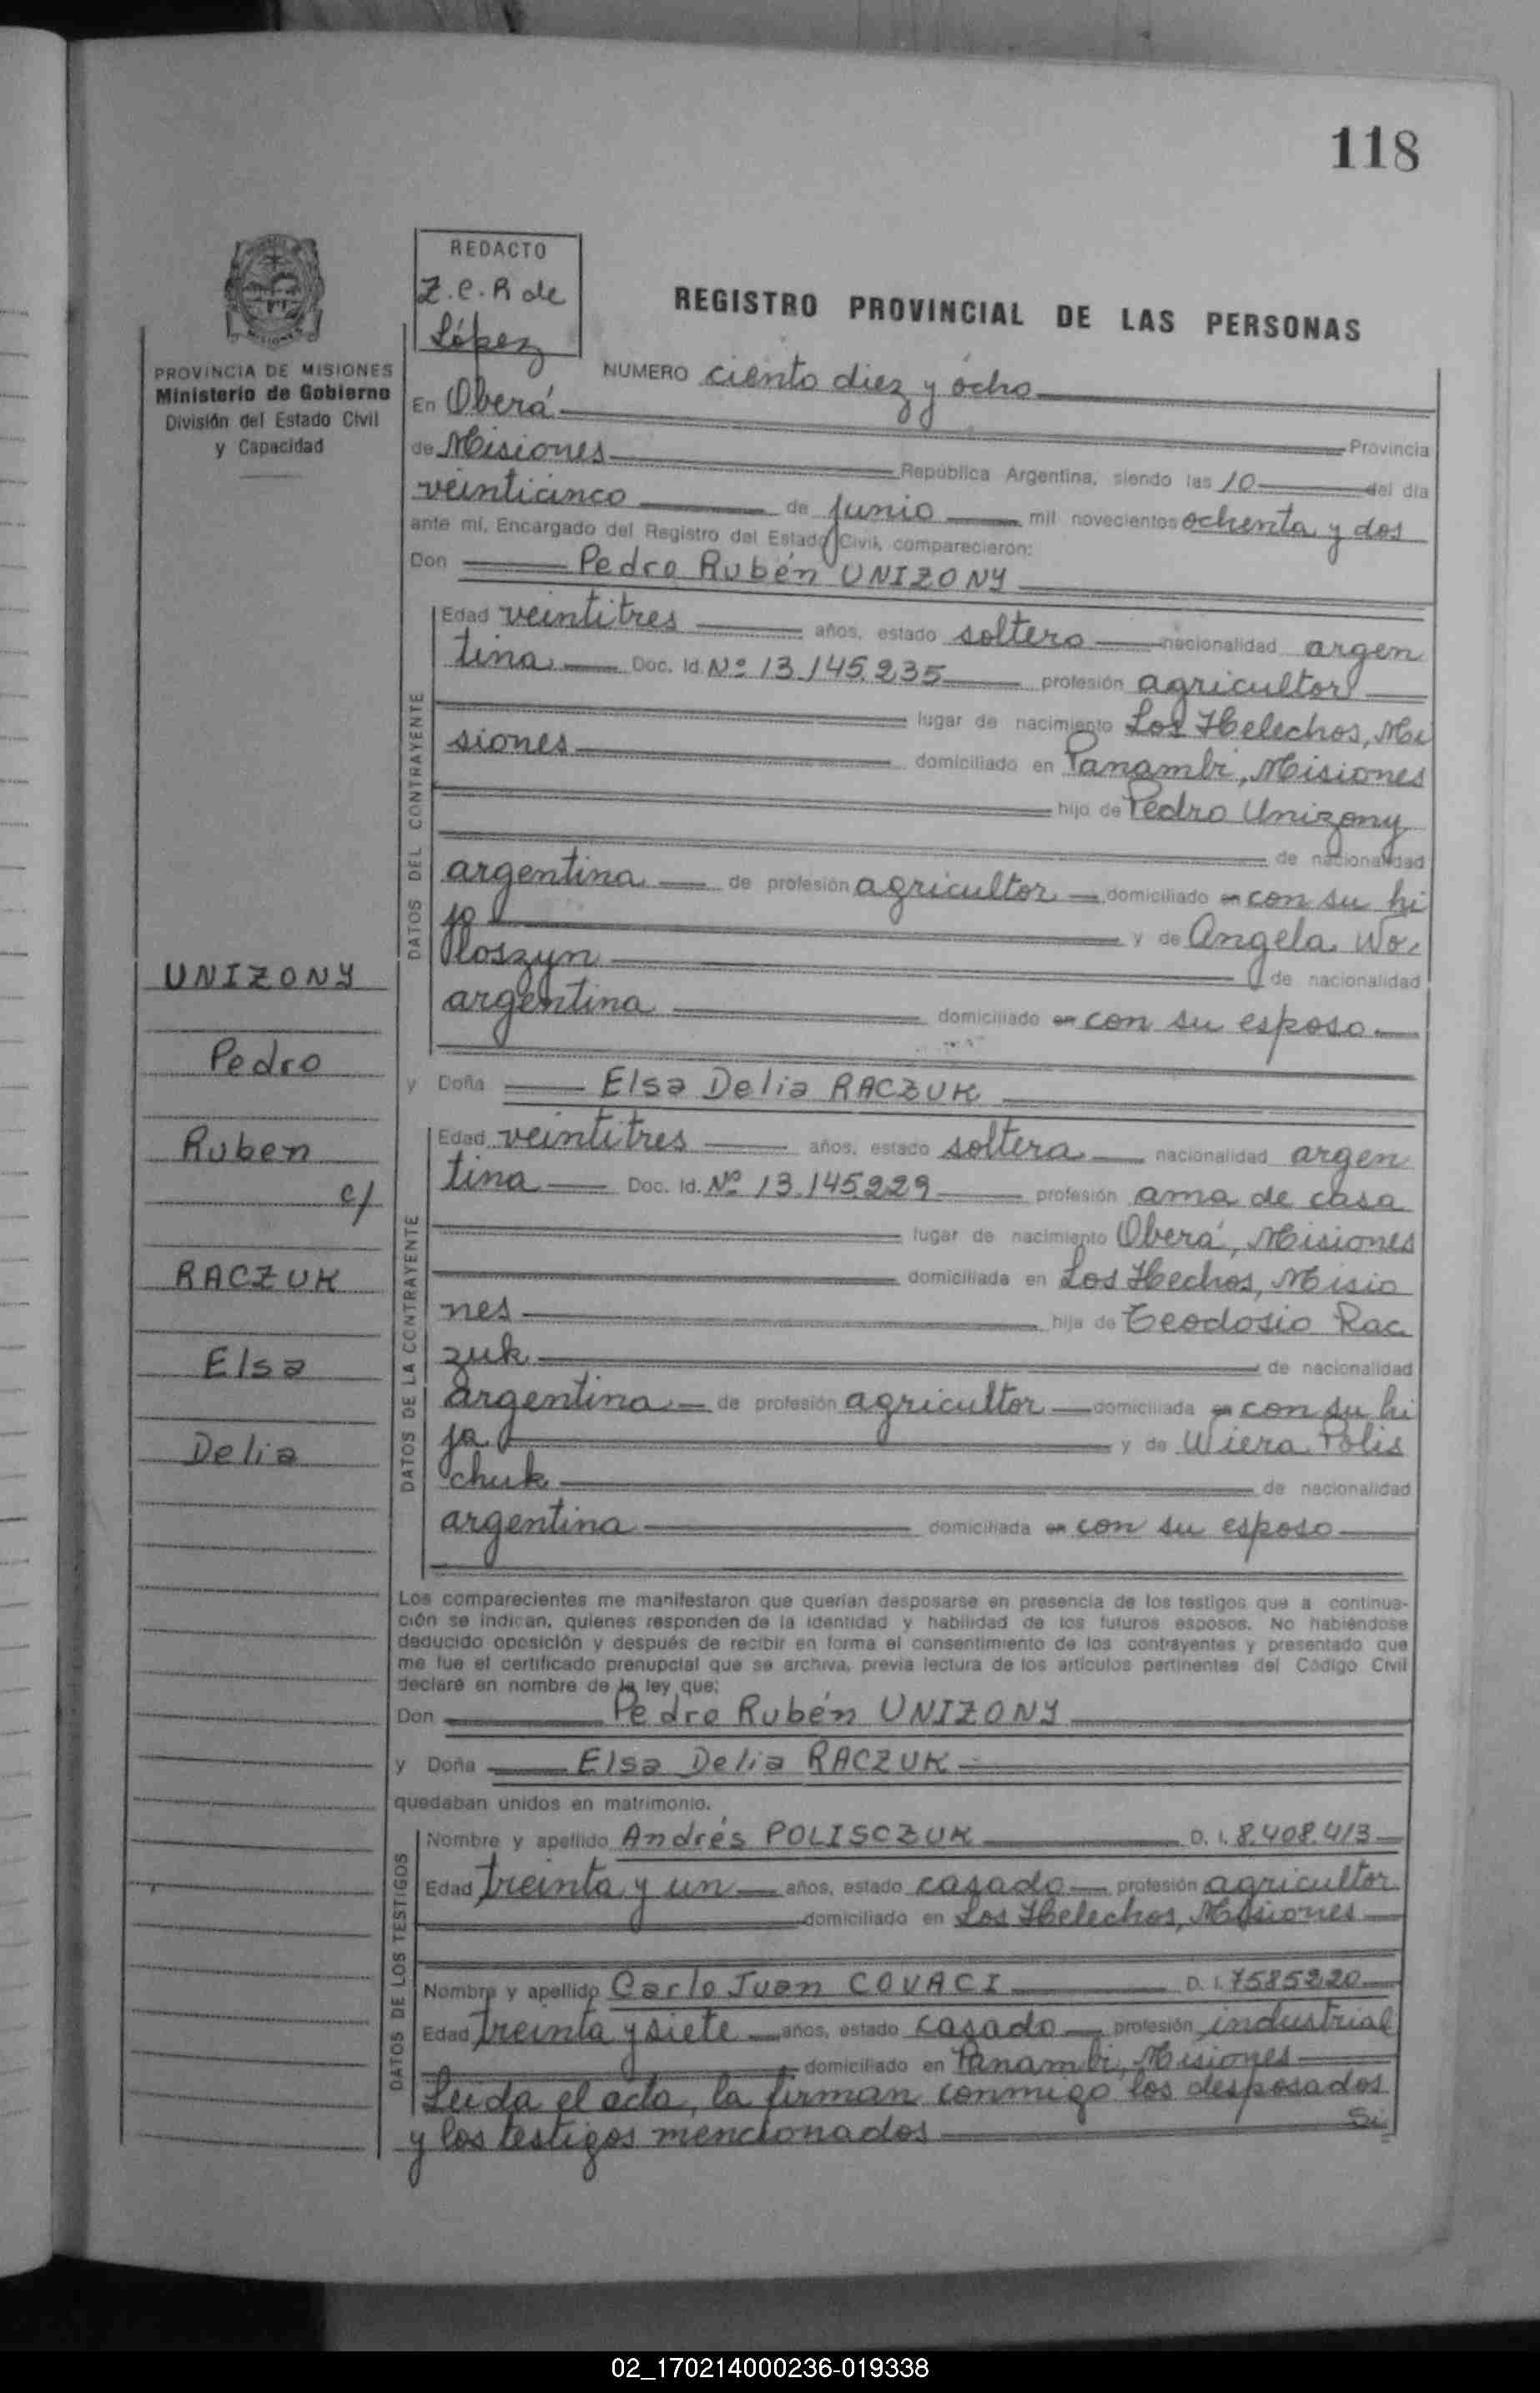 118
REDACTO
Z.C.R de
López
REGISTRO PROVINCIAL DE LAS PERSONAS
PROVINCIA DE MISIONES
Ministerio de Gobierno
División del Estado Civil
y Capacidad
NUMERO ciento diez y ocho
En Oberá
Provincia
de Misiones República Argentina, siendo las 10 del día
veinticinco de junio mil novecientos ochenta y dos
ante mí, Encargado del Registro del Estado Civil, comparecieron:
Don Pedro Rubén UNIZONY
DATOS DEL CONTRAYENTE
Edad veintitres años, estado soltero nacionalidad argen
tina Doc. Id. Nº 13.145.235 profesión agricultor
lugar de nacimiento Los Helechos, Mi
siones domiciliado en Panambi, Misiones
hijo de Pedro Unizony
de nacionalidad
argentina de profesión agricultor domiciliado en con su hi
jo y de Angela Wo
loszyn de nacionalidad
argentina domiciliado en con su esposo
UNIZONY
Pedro
Ruben
c/
RACZUK
Elsa
Delia
y Doña Elsa Delia RACZUK
DATOS DE LA CONTRAYENTE
Edad veintitres años, estado soltera nacionalidad argen
tina Doc. Id. Nº 13.145229 profesión ama de casa
lugar de nacimiento Oberá, Misiones
domiciliada en Los Hechos, Misio
nes hija de Teodosio Rac
zuk de nacionalidad
argentina de profesión agricultor domiciliada en con su hi
ja y de Wiera Polis
chuk de nacionalidad
argentina domiciliada en con su esposo
Los comparecientes me manifestaron que querían desposarse en presencia de los testigos que a continua-
ción se indican, quienes responden de la identidad y habilidad de los futuros esposos. No habiéndose
deducido oposición y después de recibir en forma el consentimiento de los contrayentes y presentado que
me fue el certificado prenupcial que se archiva, previa lectura de los artículos pertinentes del Código Civil
declaré en nombre de la ley que:
Don Pedro Rubén UNIZONY
y Doña Elsa Delia RACZUK
quedaban unidos en matrimonio.
DATOS DE LOS TESTIGOS
Nombre y apellido Andrés POLISCZUK D. I. 8.408.413
Edad treinta y un años, estado casado profesión agricultor
domiciliado en Los Helechos, Misiones
Nombre y apellido Carlo Juan COVACI D. I. 7585220
Edad treinta y siete años, estado casado profesión industrial
domiciliado en Panambi, Misiones
Leida el acta, la firman conmigo los desposados
y los testigos mencionados
02_170214000236-019338